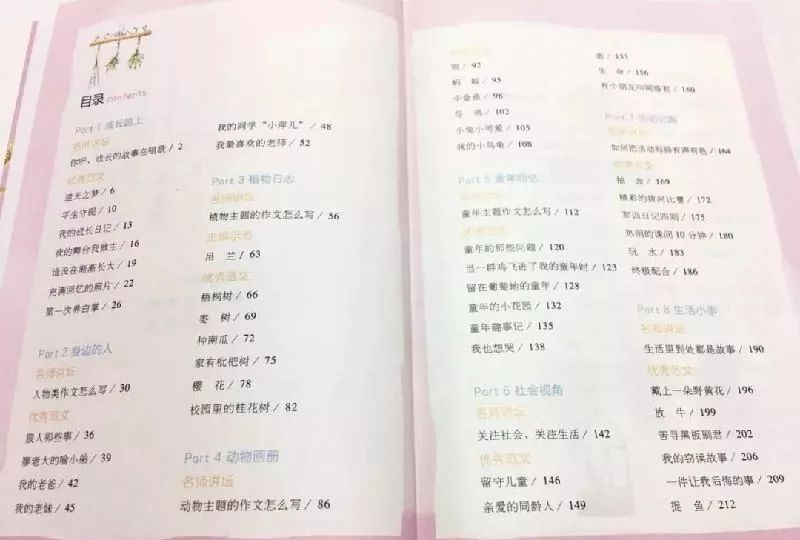 目录 contents
Part 1 成长路上
名师讲坛
你听，成长的故事在唱歌 / 2
优秀范文
逆天之梦 / 6
平生守规 / 10
我的成长日记 / 13
我的舞台我做主 / 16
谁没在渐渐长大 / 19
充满回忆的照片 / 22
第一次养白掌 / 26
Part 2 身边的人
名师讲坛
人物类作文怎么写 / 30
优秀范文
狼人那些事 / 36
廖老大的喻小船 / 39
我的老爸 / 42
我的老妹 / 45
我的同学“小淳儿” / 48
我最喜欢的老师 / 52
Part 3 植物日志
名师讲坛
植物主题的作文怎么写 / 56
主编示范
吊兰 / 63
优秀范文
梧桐树 / 66
枣树 / 69
种南瓜 / 72
家有枇杷树 / 75
樱花 / 78
校园里的桂花树 / 82
Part 4 动物画册
名师讲坛
动物主题的作文怎么写 / 86
优秀范文
狗 / 92
蚂蚁 / 95
小金鱼 / 98
母鸡 / 102
小兔小可爱 / 105
我的小乌龟 / 108
Part 5 童年回忆
名师讲坛
童年主题作文怎么写 / 112
优秀范文
童年的那些问题 / 120
当一群鸡飞进了我的童年时 / 123
留在葡萄地的童年 / 128
童年的小花园 / 132
童年趣事记 / 135
我也想哭 / 138
Part 6 社会视角
名师讲坛
关注社会、关注生活 / 142
优秀范文
留守儿童 / 146
亲爱的同龄人 / 149
/ 153
生命 / 156
有个朋友叫网络君 / 160
Part 7 活动记趣
名师讲坛
如何把活动写得有声有色 / 164
优秀范文
抽血 / 169
精彩的拔河比赛 / 172
军训日记四则 / 175
热闹的课间10分钟 / 180
玩水 / 183
终极配合 / 186
Part 8 生活小事
名师讲坛
生活里到处都是故事 / 190
优秀范文
戴上一朵野黄花 / 196
放牛 / 199
苦寻黑板别君 / 202
我的窃读故事 / 206
一件让我后悔的事 / 209
捉鱼 / 212